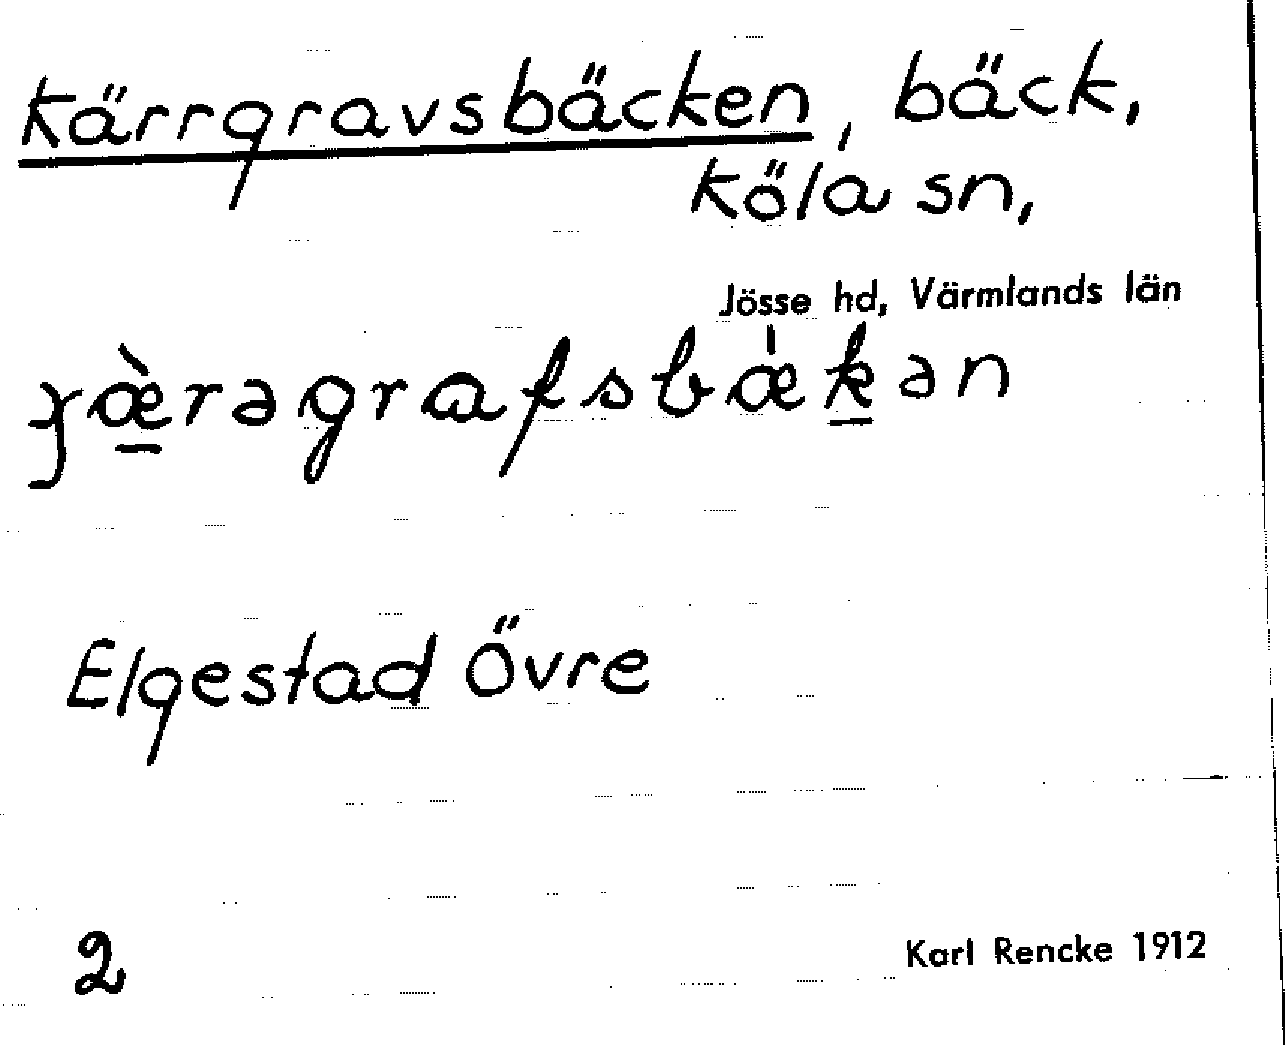 Kärrgravsbäcken, bäck,
Köla sn,
Jösse hd, Värmlands län
Elgestad Övre
2
Karl Rencke 1912